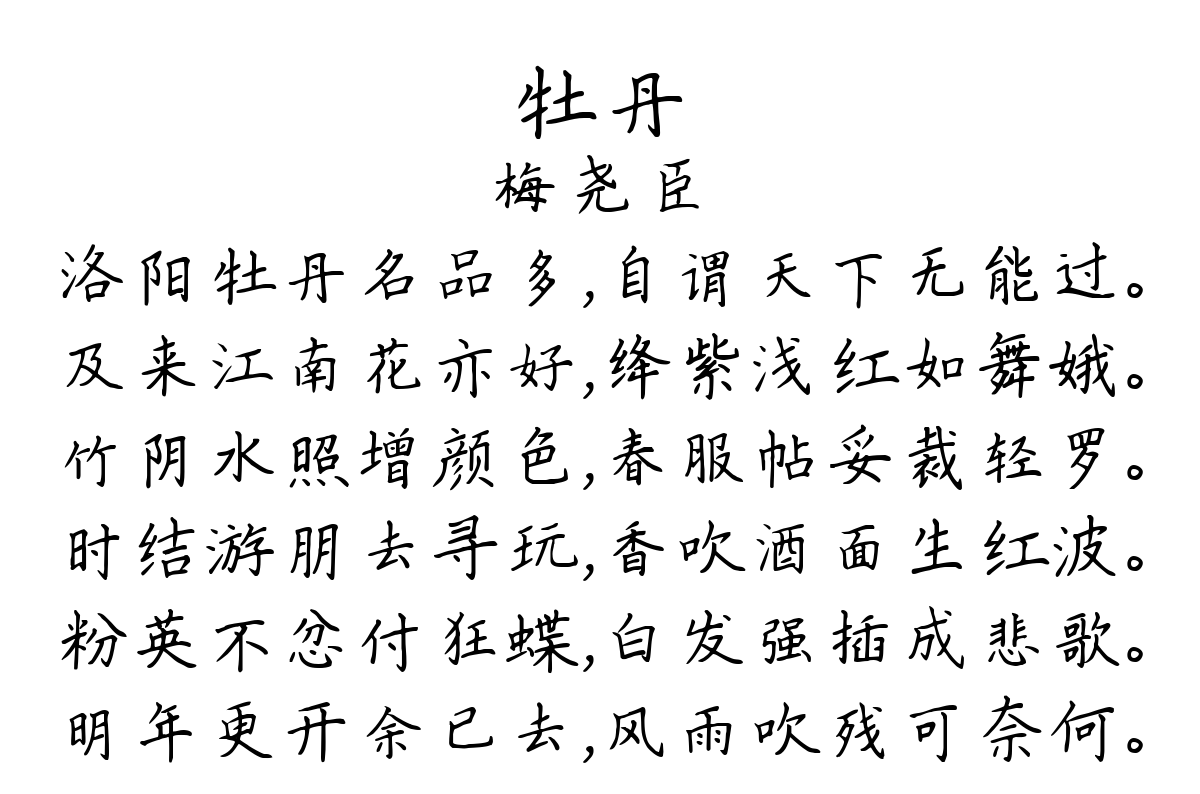 牡丹
梅尧臣
洛阳牡丹名品多,自谓天下无能过。
及来江南花亦好,绛紫浅红如舞娥。
竹阴水照增颜色,春服帖妥裁轻罗。
时结游朋去寻玩,香吹酒面生红波。
粉英不忿付狂蝶,白发强插成悲歌。
明年更开余已去,风雨吹残可奈何。